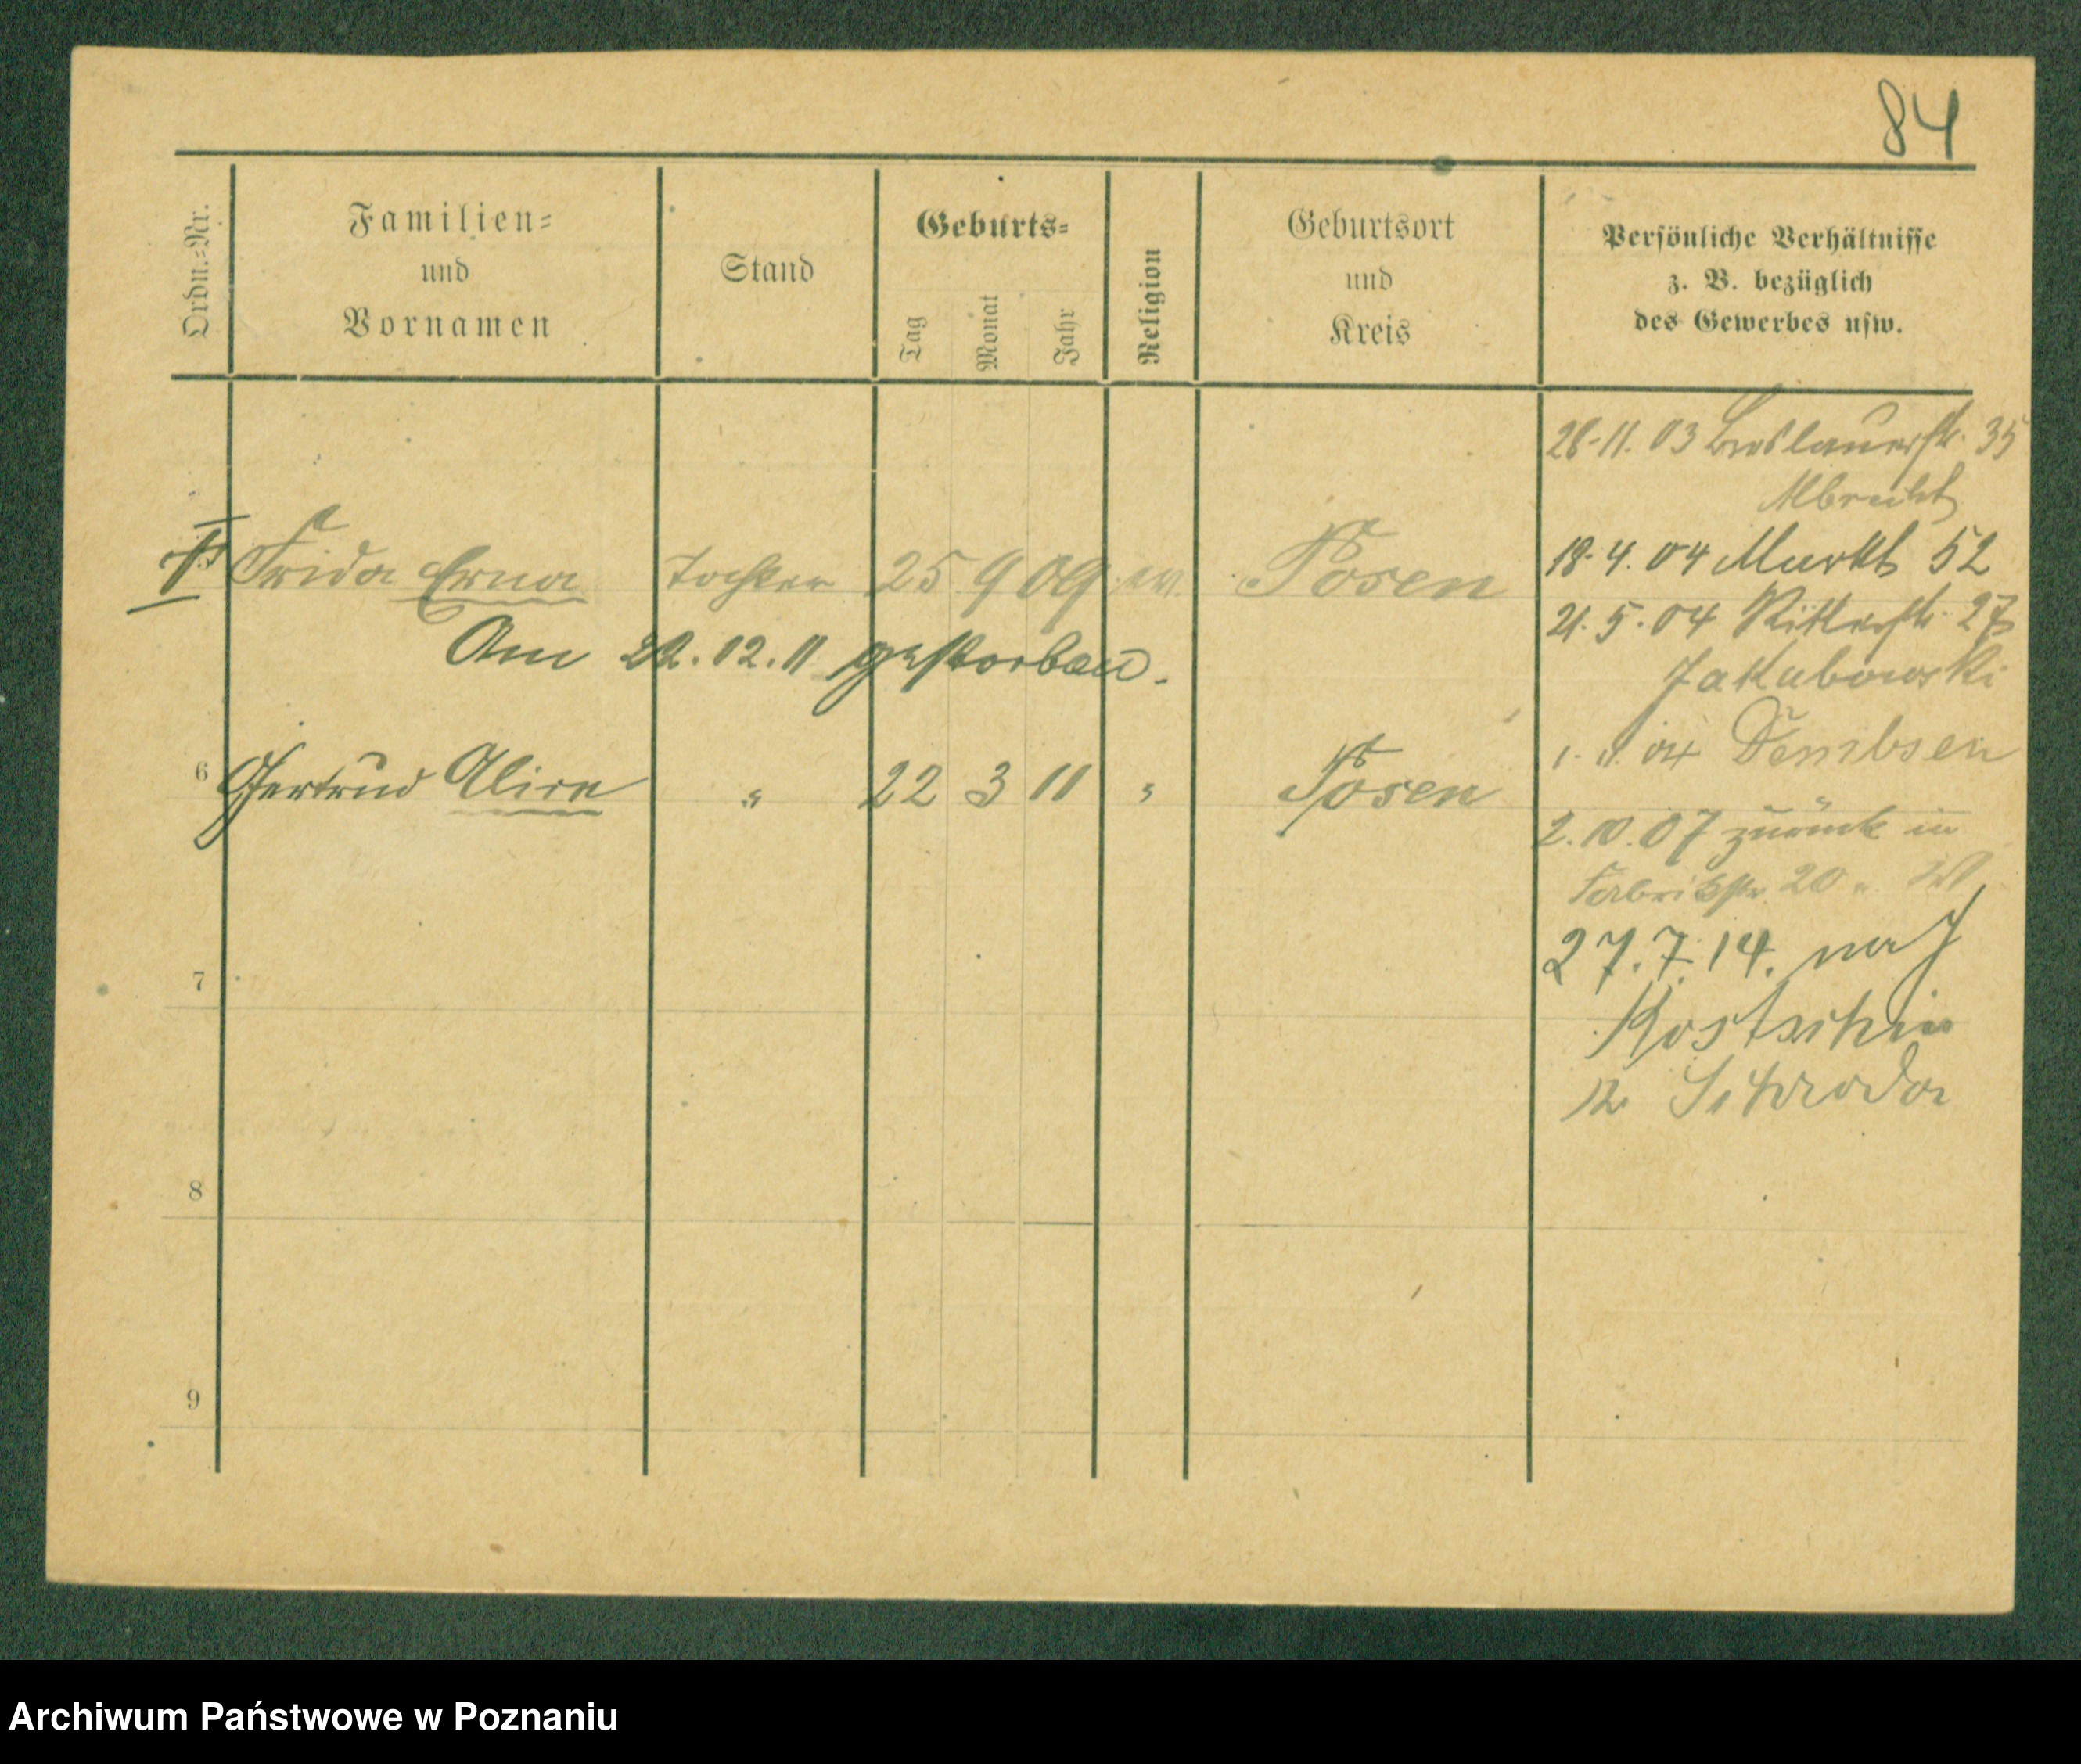 84
Ordn.-Nr.
Familien-
und
Vornamen
Stand
Geburts-
Tag
Monat
Jahr
Religion
Geburtsort
und
Kreis
Persönliche Verhältnisse
z. B. bezüglich
des Gewerbes usw.
28-11.03 Breslauerstr. 35
Albrecht
18.4.04 Markt 52
Frida Erna Tochter 25 9 09 ev. Posen
21.5.04 Ritterstr. 27
Am 22.12.11 gestorben.
Jakubowski
1. 11. 04 Dembsen
6 Gertrud Alice " 22 3 11 " Posen
2.10.07 zurück in
Fabrikstr. 20
27.7.14. nach
7
Kostschin
Schroda
8
9
Archiwum Państwowe w Poznaniu